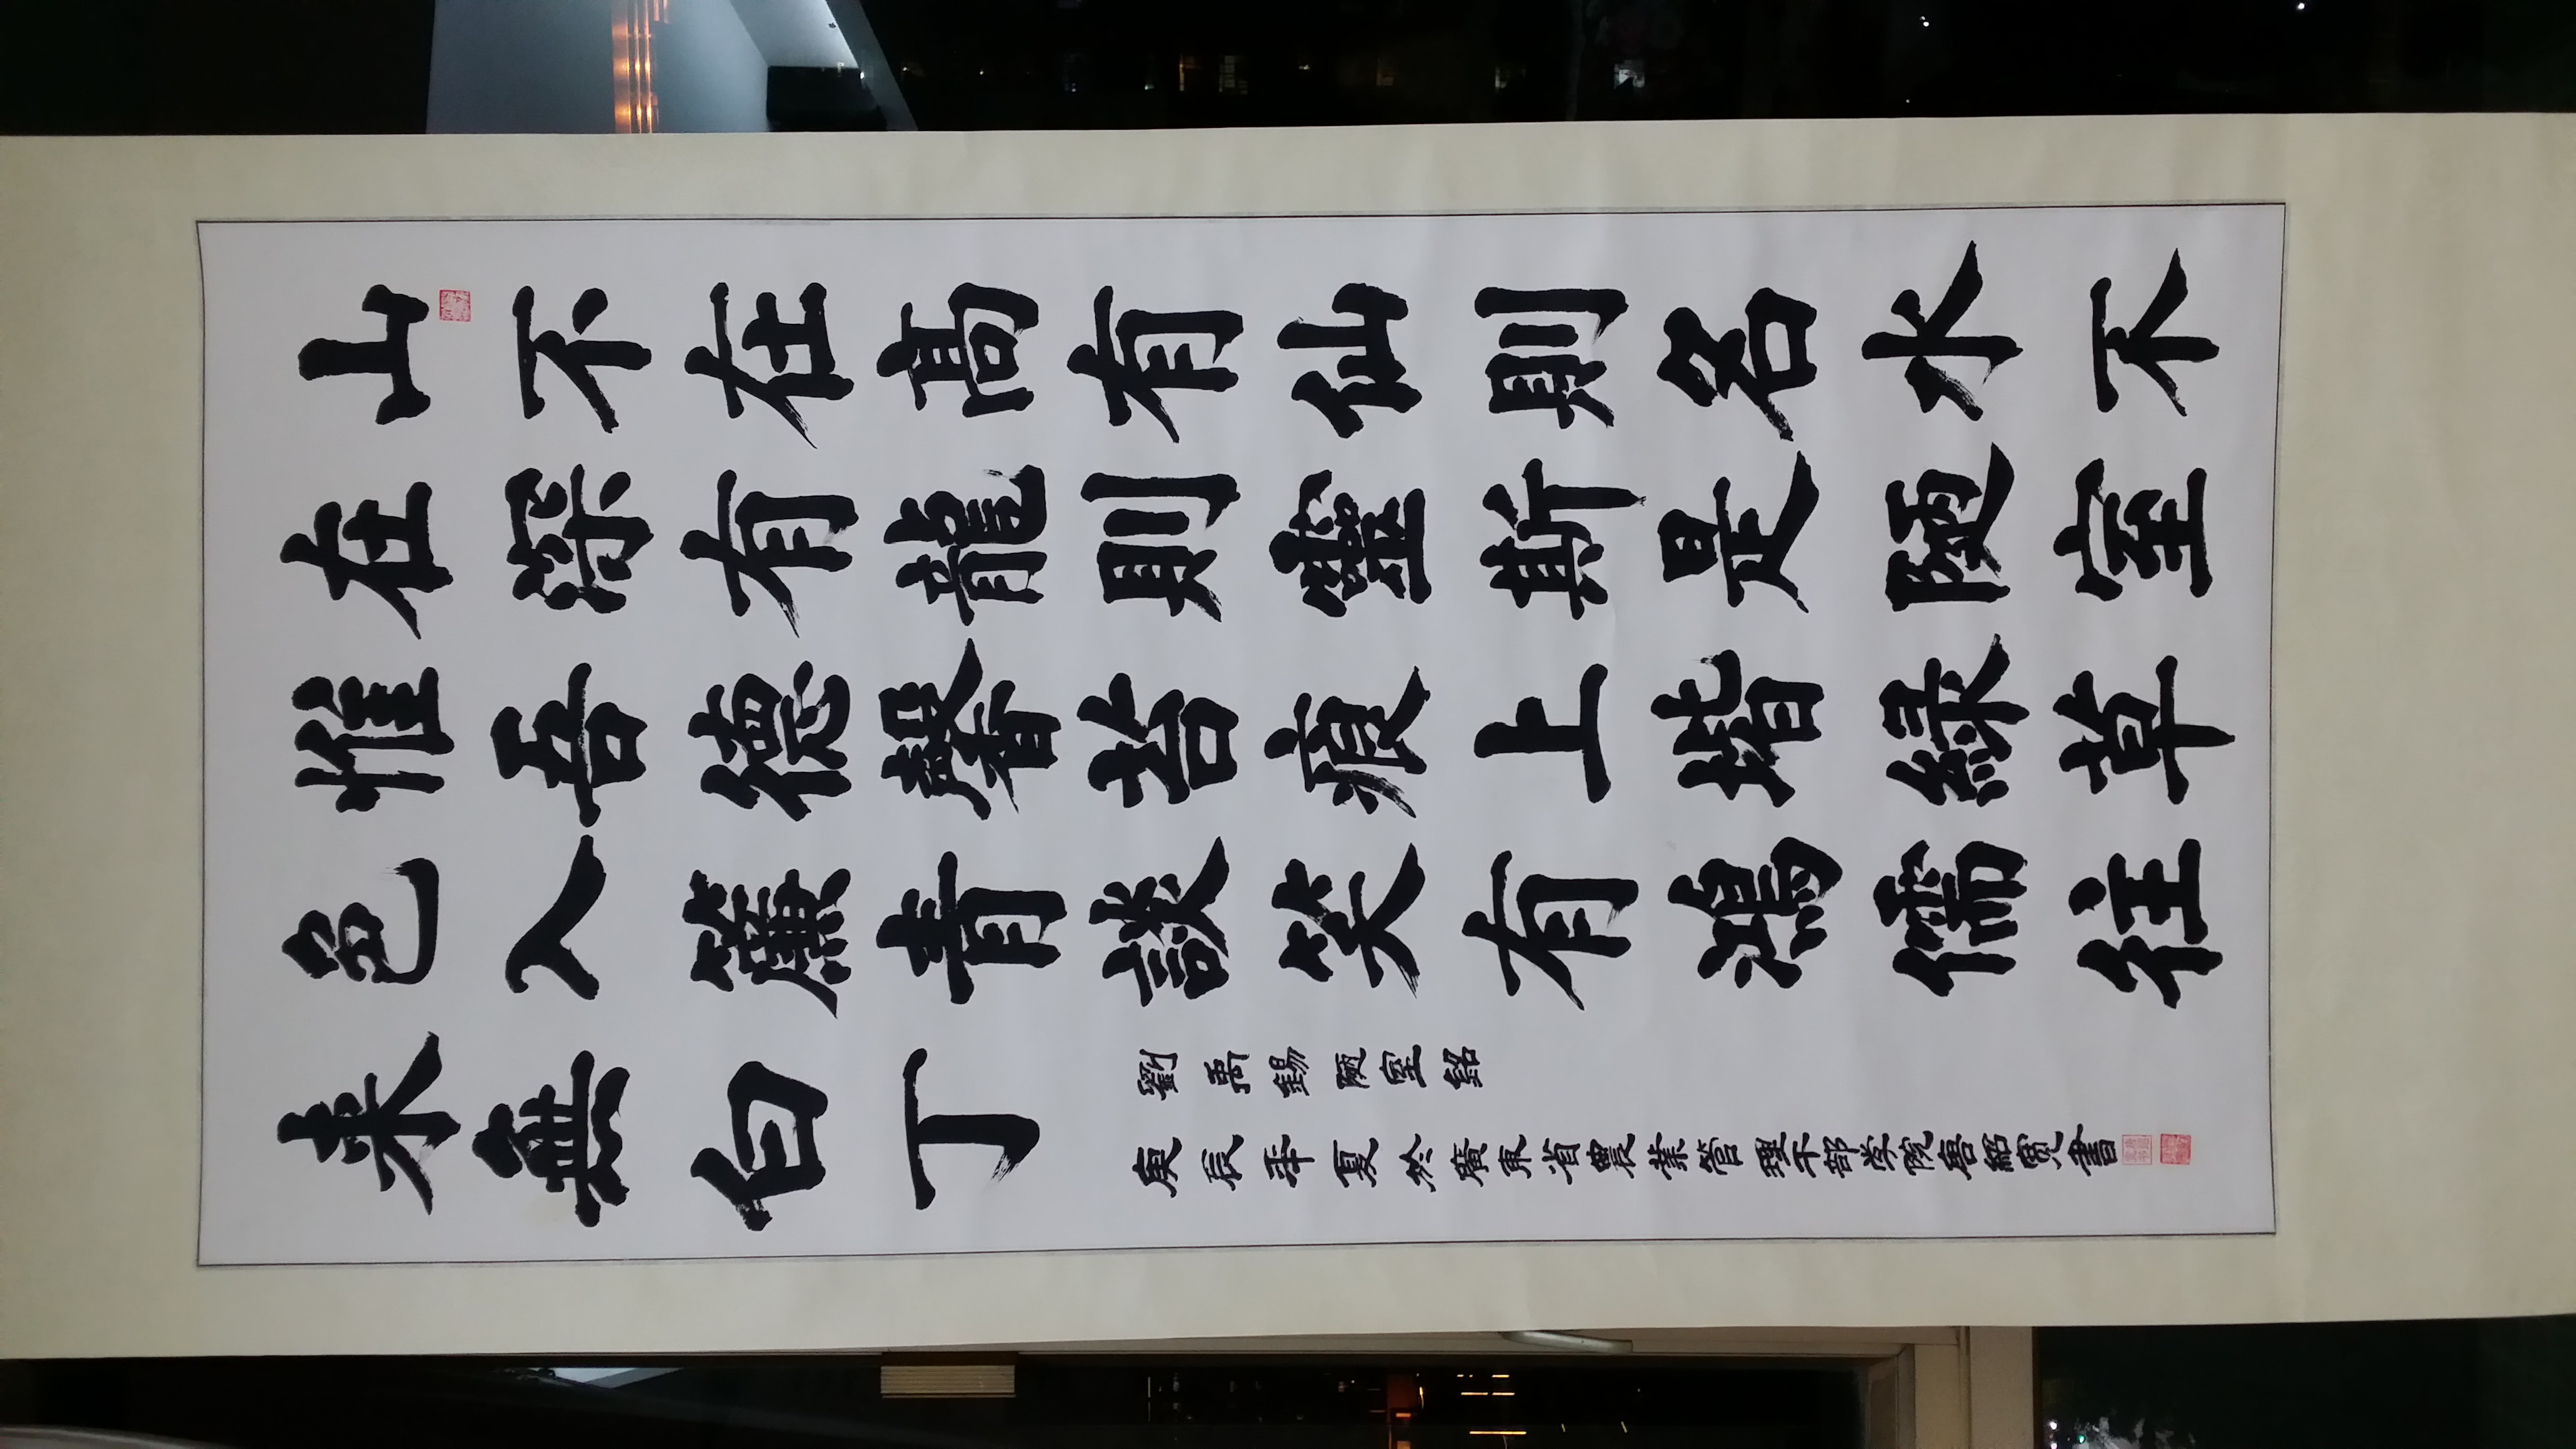 山不在高有仙則名水不
在深有龍則靈斯是陋室
惟吾德馨苔痕上堦緑草
色入簾青談笑有鴻儒往
来無白丁
劉禹錫陋室銘
庚辰年夏於廣東省農業管理干部学院唐紹寛書